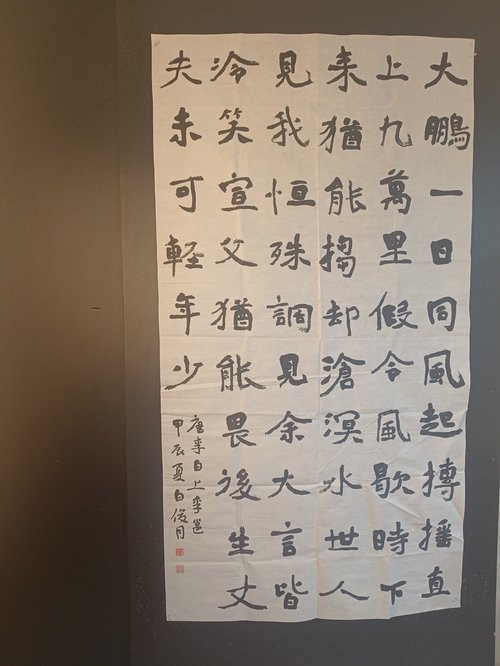 大鵬一日同風起摶搖直
上九萬里假令風歇時下
来猶能却滄溟水世人
見我恒殊調見余大言皆
冷笑宣父猶能畏後生丈
夫未可輕年少
唐李白上李邕
甲辰夏白俊月